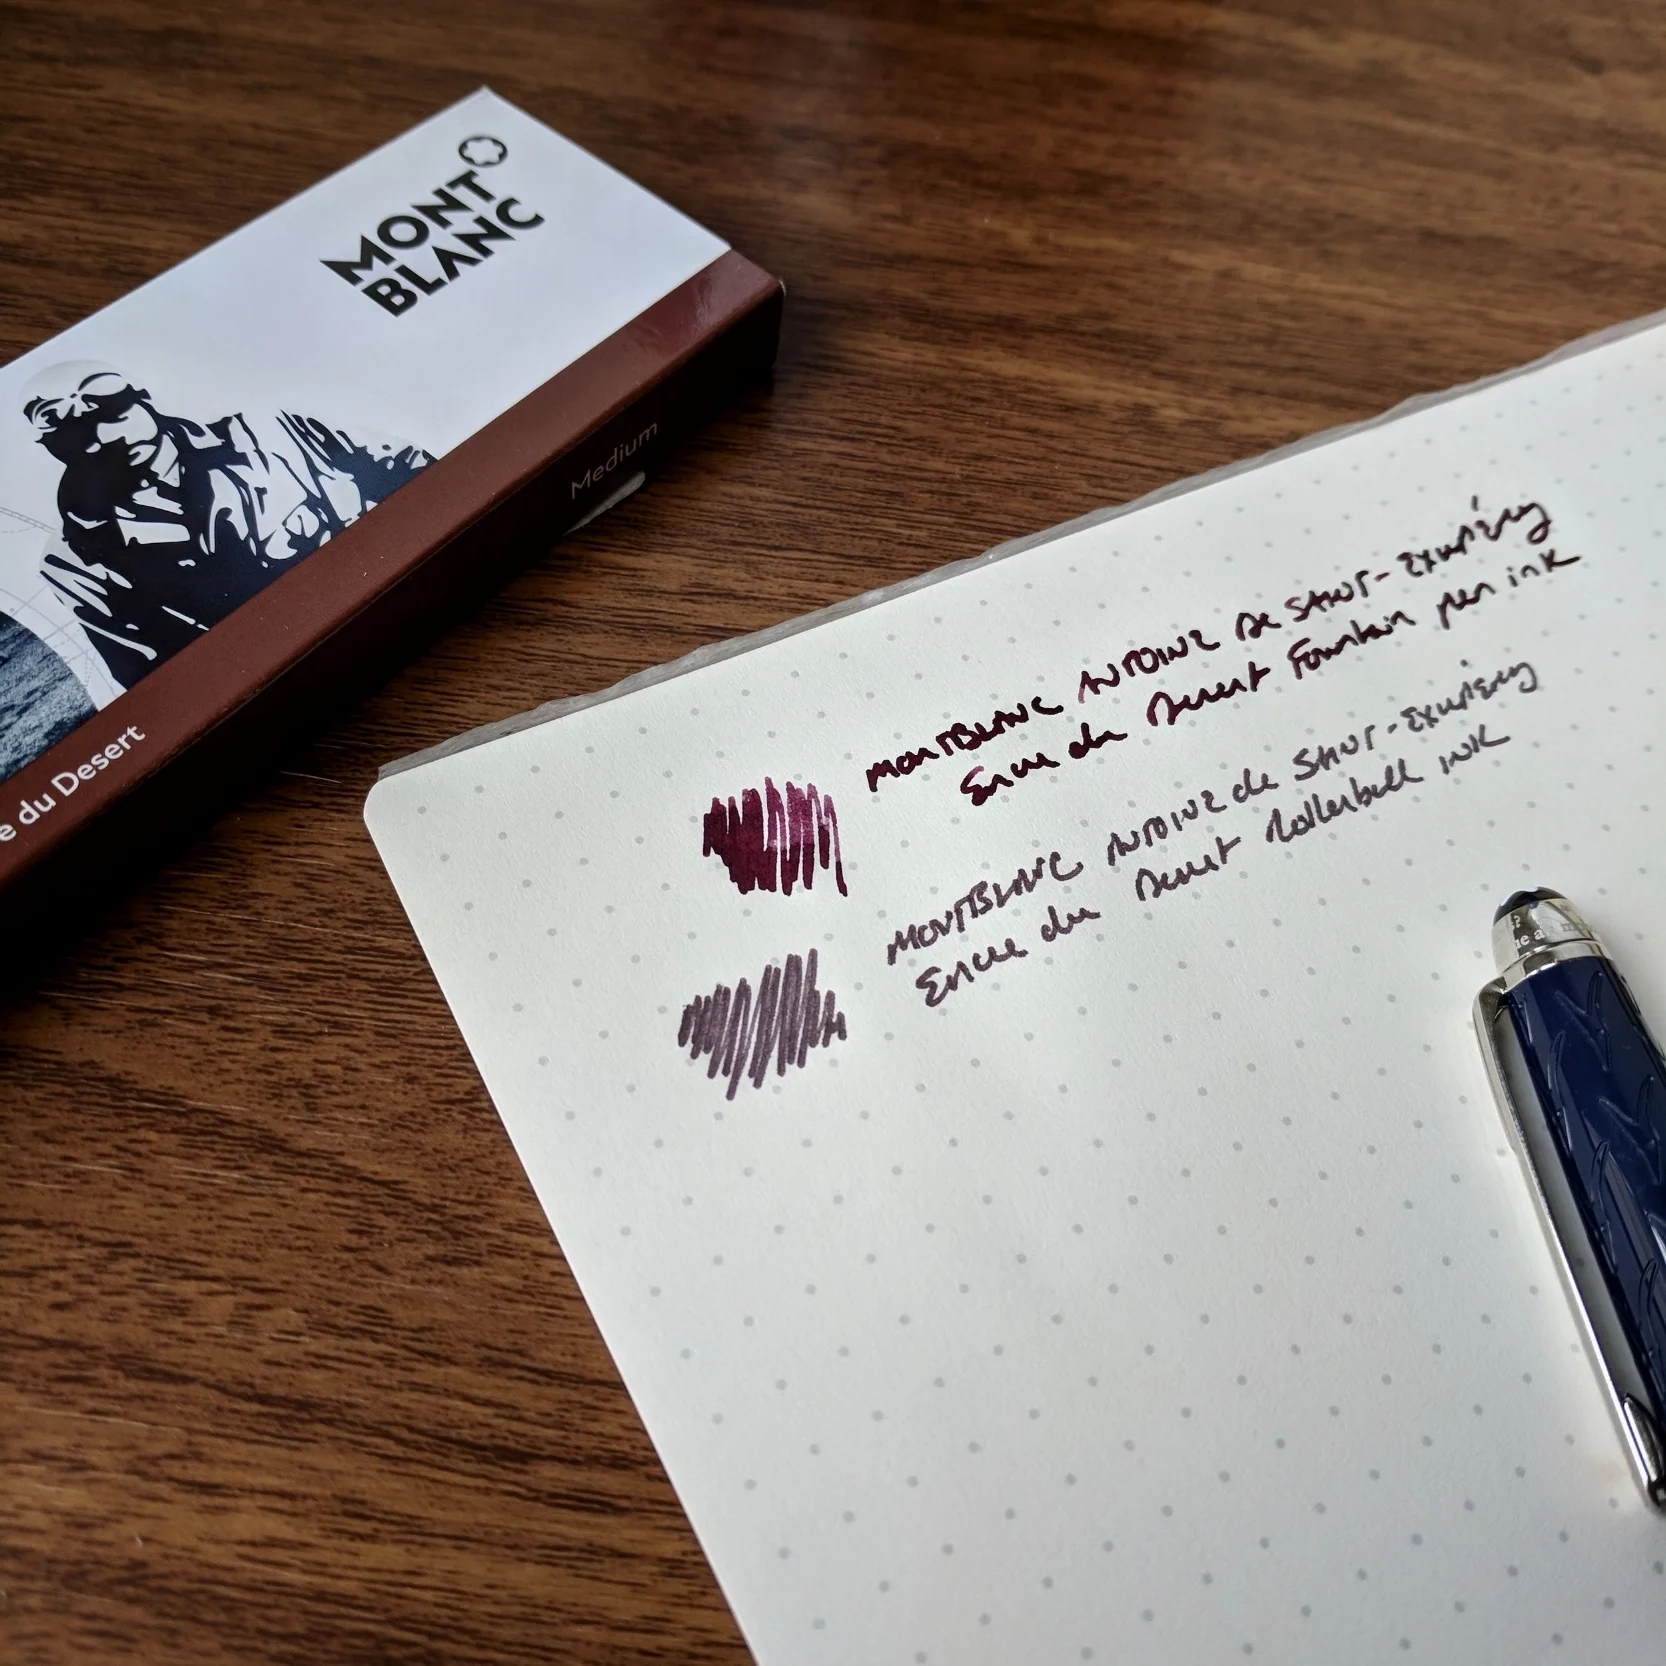 MONT
BLANC
e du Desert
Medium
MONTBLANC ANTOINE de SAINT-EXUPÉRY
Encre du Desert Fountain pen ink
MONTBLANC ANTOINE de SAINT-EXUPÉRY
Encre du Desert Rollerball ink